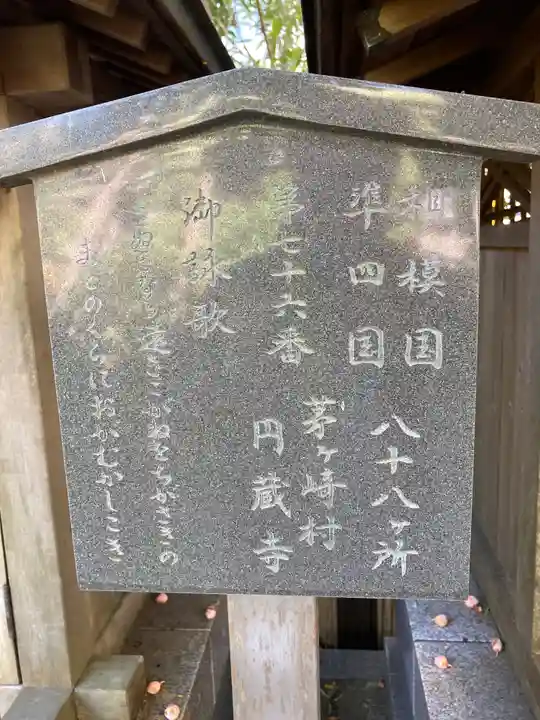 相模国
準四国
八十八ヶ所
第七十六番
茅ヶ崎村
円蔵寺
御詠歌
きこがねをちがさきの
まどのくらにおがむかしこき